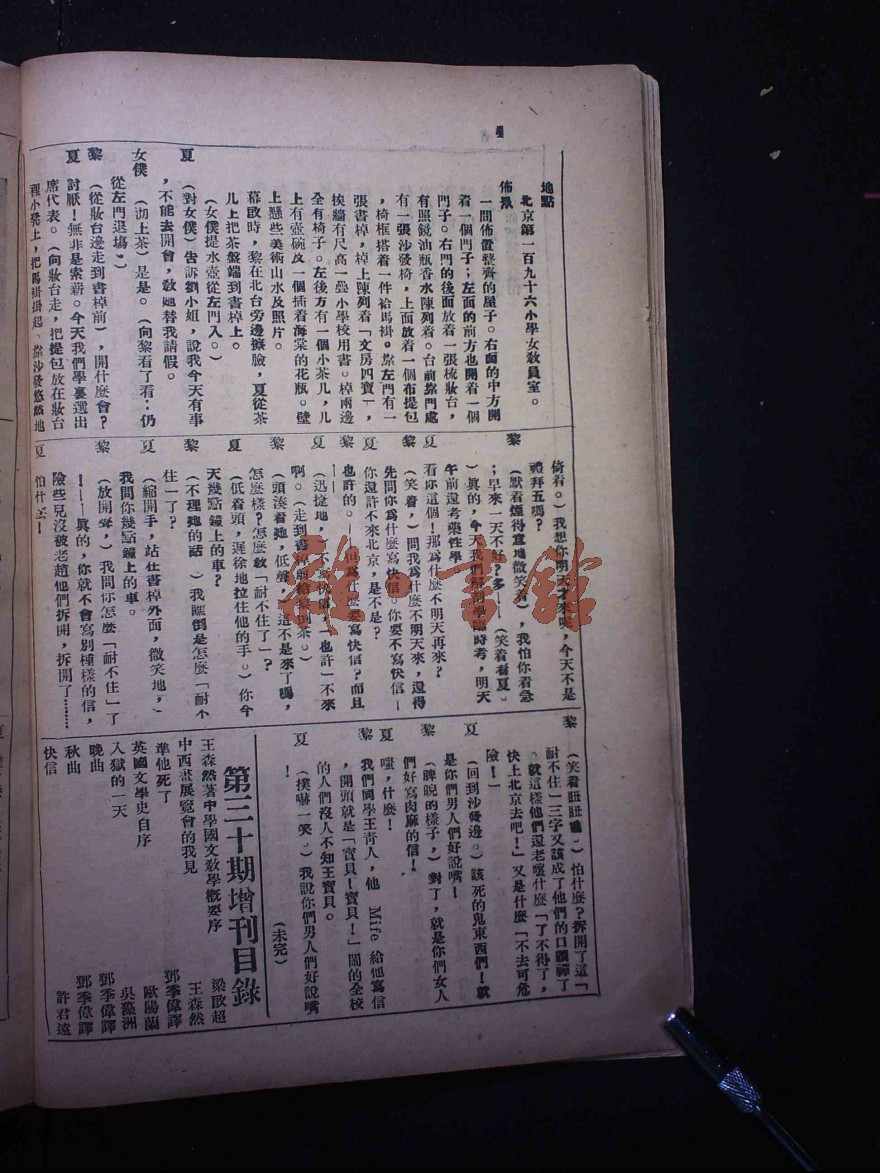 地點
北京第一百九十六小學女教員室。
佈景
一間佈置整齊的屋子。右面的中方開
着一個門子;左面的前方也開着一個
門子。右門的後面放着一張梳妝台,
有照鏡油瓶香水陳列着。台前靠門處
有一張沙發椅,上面放着一個布提包
,椅框搭着一件袷馬褂。靠左門有一
張書棹,棹上陳列着「文房四寶」,
挨牆有尺高一疊小學校用書。棹兩邊
全有椅子。左後方有一個小茶儿,儿
上有壺碗及一個插着海棠的花瓶。壁
上懸些美術山水及照片。
幕啟時,黎在北台旁邊擦臉,夏從茶
儿上把茶盤端到書棹上。
(女僕提水壺從左門入。)
夏 (對女僕)告訴劉小姐,說我今天有事
,不能去開會,敎她替我請假。
女僕 (沏上茶)是是。(向黎看了看:仍
從左門退塲。)
黎 (從妝台邊走到書棹前),開什麼會?
夏 討厭!無非是索薪。今天我們學裏選出
席代表。(向妝台走,把提包放在妝台
裡小凳上,把馬褂掛起,靠沙發悠然地
倚着。)我想你明天才來呢,今天不是
禮拜五嗎?
黎 (默着煙得意地微笑着),我怕你着急
;早來一天不好?多——(笑着看夏。
)眞的,今天我們 學臨時考,明天
午前還考藥性學。
夏 看你這個!那爲什麼不明天再來?
黎 (笑着,)問我爲什麼不明天來,還得
先問你爲什麼寫快信。你要不寫快信—
你還許不來北京,是不是?
夏 也許的。——但爲什麼要寫快信?而且
——
黎 (迅捷地,)不寫快信,「也許」不來
夏 啊。(走到書棹前給黎倒茶。)
黎 (頭湊看她,低聲,)這不是來了嗎,
怎麼樣?怎麼敎「耐不住了」?
夏 (低着頭,遲徐地拉住他的手。)你今
天幾點鐘上的車?
黎 (不理她的話 )我 倒是怎麼「耐不
住」了?
夏 (縮開手,站在書棹外面,微笑地,)
我問你幾點鐘上的車。
黎 (放開聲,)我問你怎麼「耐不住」了
!——眞的,你就不會寫別種樣的信,
險些兒沒被老趙他們拆開,拆開了……
夏 怕什么—
黎 (笑着 。)怕什麼?拆開了這「
耐不住」三字又該成了他們的口頭禪了
,就這樣他們還老嚷什麼「了不得了,
快上北京去吧!」又是什麼「不去可危
險!」
夏 (回到沙發邊。)該死的鬼東西們!就
是你們男人們好說嘴—
黎 (睥睨的樣子,)對了,就是你們女人
們好寫肉麻的信!
夏 嘡,什麼!
黎 我們同學王青人,他 Mife 給他寫信
,開頭就是「寳貝—寳貝!」鬧的全校
的人們沒人不知王寳貝。
夏 (撲嚇一笑。)我說你們男人們好說嘴
!
(未完)
第三十期增刊目錄
王森然著中學國文敎學槪要序 梁啟超
中西畫展覽會的我見 王森然
準他死了 鄧季偉譯
英國文學史自序 歐陽蘭
入獄的一天 吳藻洲
晚曲 鄧季偉譯
秋曲 鄧季偉譯
快信 許君遠
雜·書館